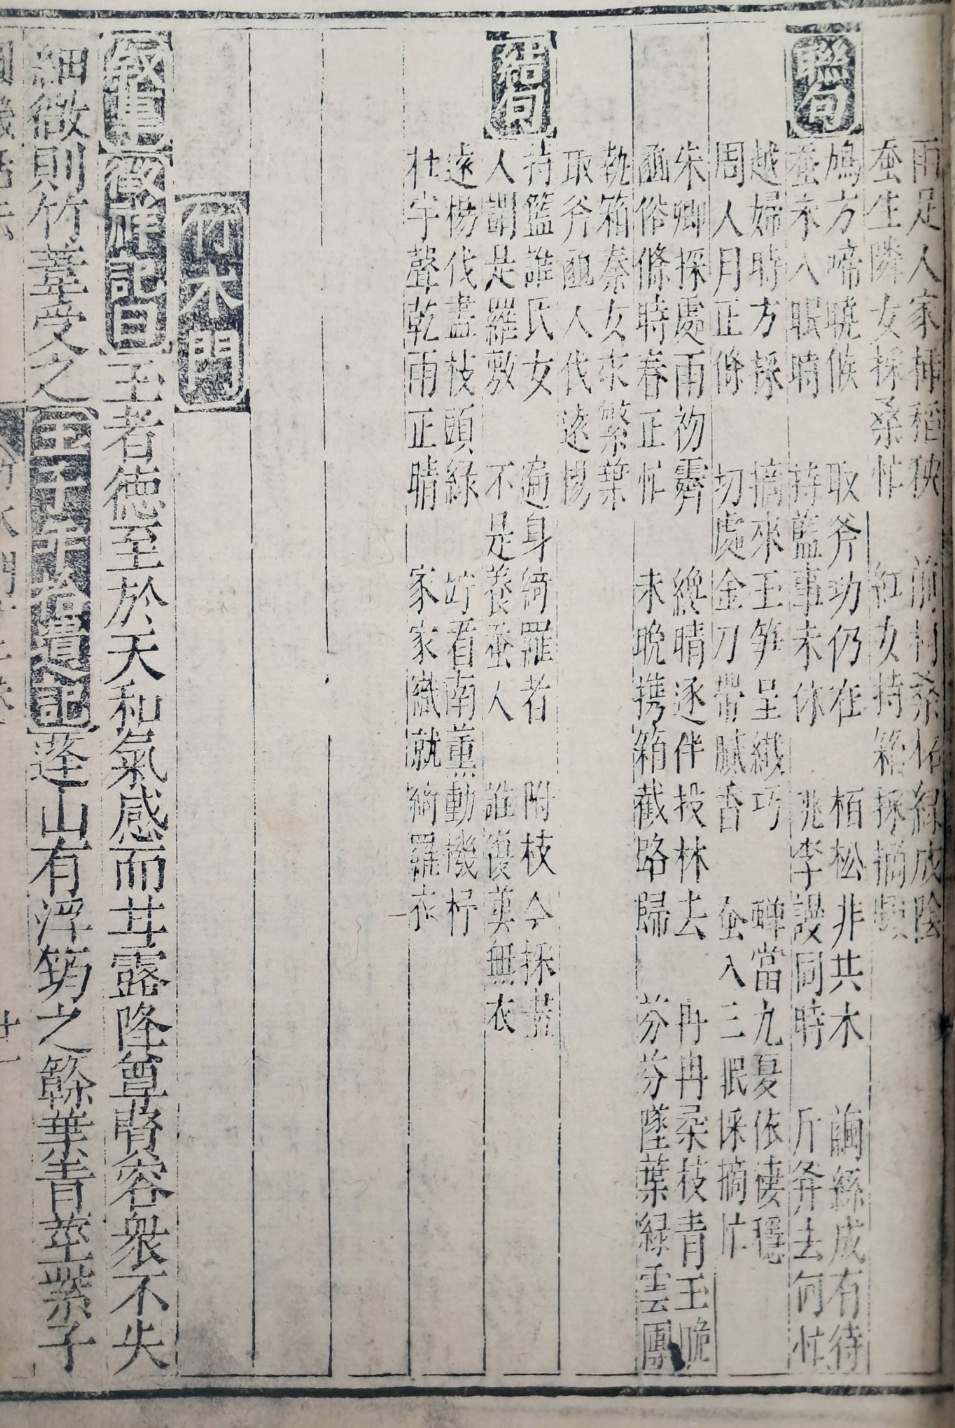 雨足人家插稻秧　前村桑柘綠成陰
蚕生隣女採桑忙　紅女持箱採摘頻
聯句
鳩方啼曉候　取斧功仍在　栢松非共木　繭絲成有待
蚕未入眠時　持籃事未休　桃李謾同時　斤斧去何忙
越婦時方採　摘來玉笋呈纎巧　蟬當九夏依棲穩
周人月正條　切處金刀帶膩香　蚕入三眠採摘忙
朱卿採處雨初霽　纔晴逐伴投林去　冉冉柔枝青玉脆
豳俗條時春正忙　未晚携箱截路歸　芬芬墜葉綠雲團
執箱秦女來繁葉
取斧豳人伐遠揚
結句
持籃誰氏女　遍身綺羅者　附枝今採盡
人謂是羅敷　不是養蚕人　誰復嘆無衣
遠楊伐盡枝頭綠　竚看南薰動機杼
杜宇聲乾雨正晴　家家織就綺羅衣
竹木門
叙事　徵祥記曰　王者德至於天和氣感而甘露降尊賢容衆不失
細微則竹葦受之　王子年拾遺記　蓬山有浮筠之簳葉青莖紫子